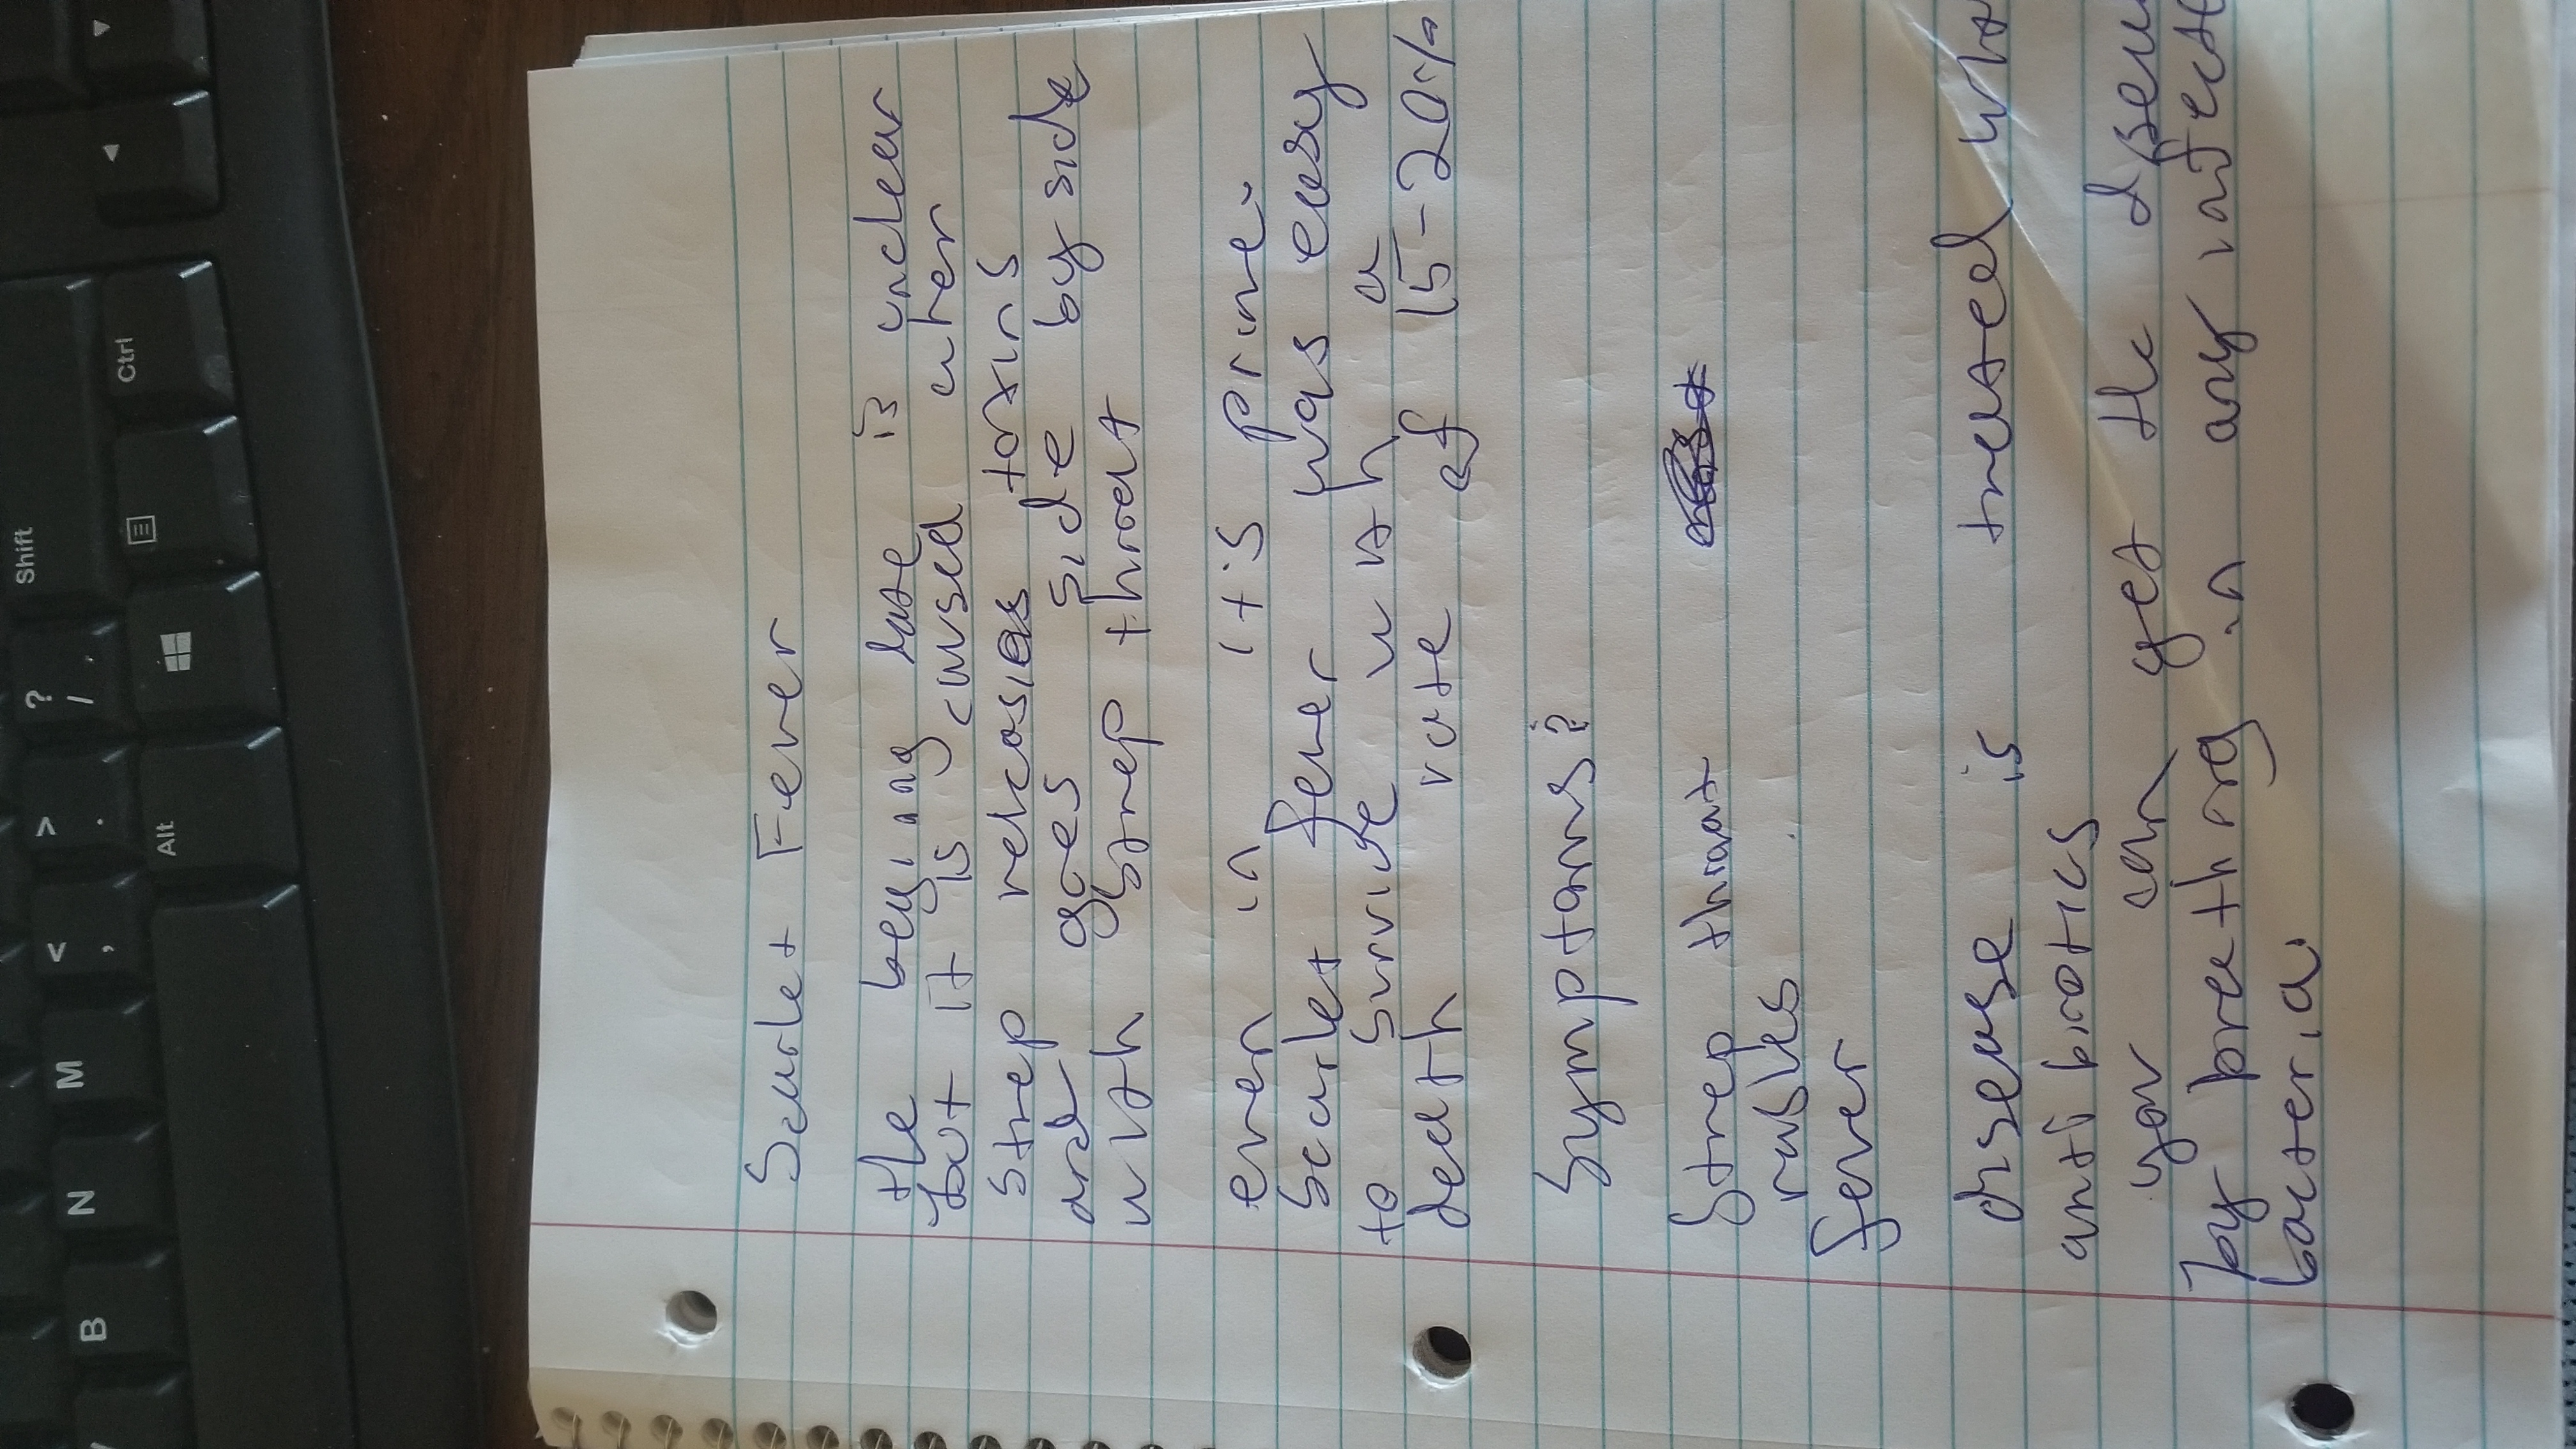 Scarlet Fever
the begining date is unclear
but it is caused when
strep releasies toxins
and goes side by side
with strep throat
even in it's prime.
Scarlet fever was easy
to survive with a
death rate of 15-20%
Symptoms?
Strep throat
rashes
fever
disease is treated
antibiotics
you can get the
by breathing in any
bacteria.
Shift
Ctrl
Alt
?
/
>
.
<
,
M
N
B